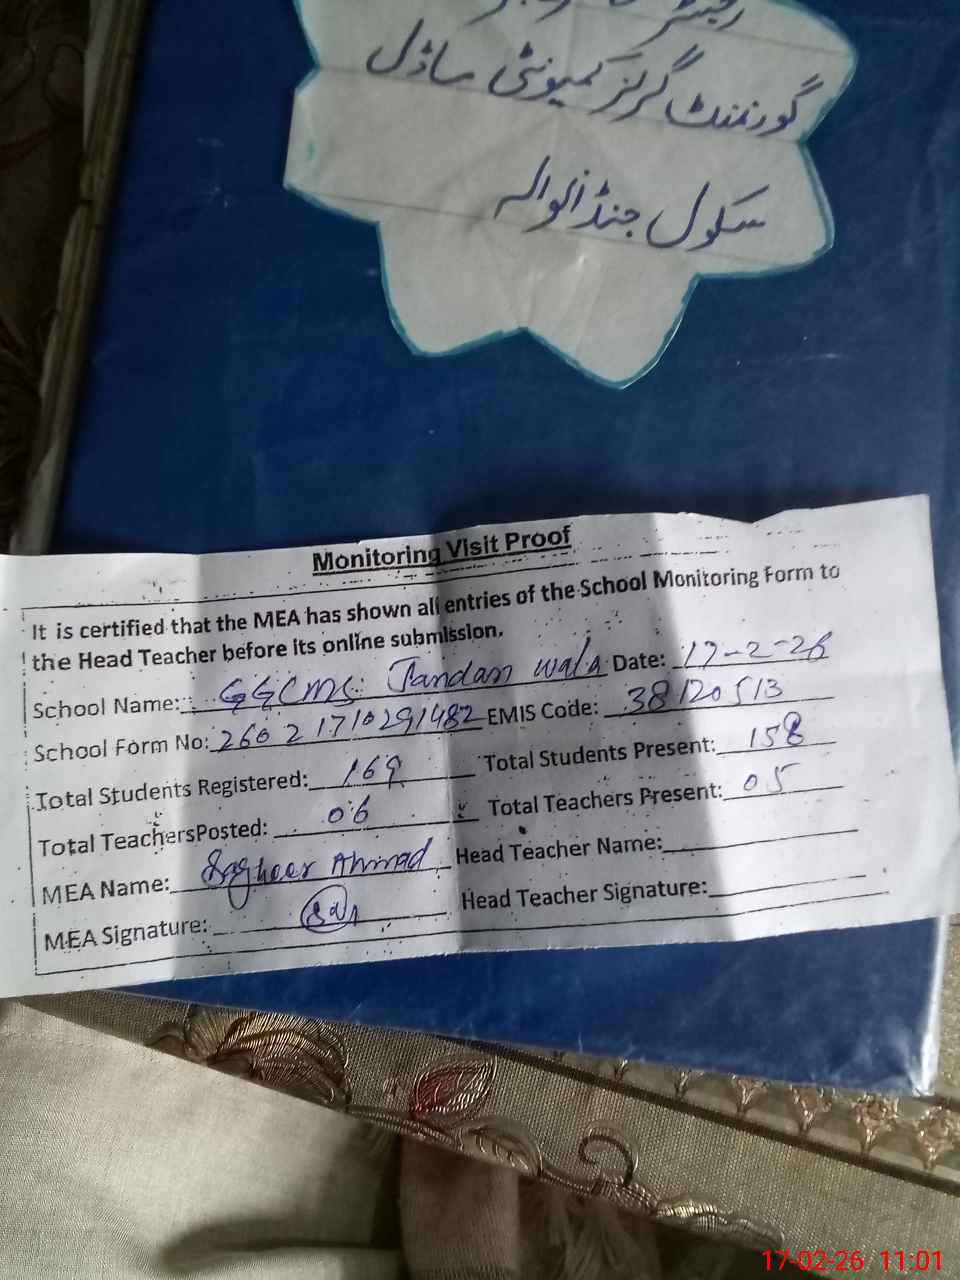 گورنمنٹ گرلز کمیونٹی ماڈل
سکول جنڈانوالہ
Monitoring Visit Proof
It is certified that the MEA has shown all entries of the School Monitoring Form to
the Head Teacher before its online submission.
School Name: GGCMS Jandan wala Date: 17-2-26
School Form No: 26021710291482 EMIS Code: 38120513
Total Students Registered: 169 Total Students Present: 158
Total TeachersPosted: 06 Total Teachers Present: 05
MEA Name: Sagheer Ahmad Head Teacher Name:
MEA Signature: Head Teacher Signature:
17-02-26 11:01